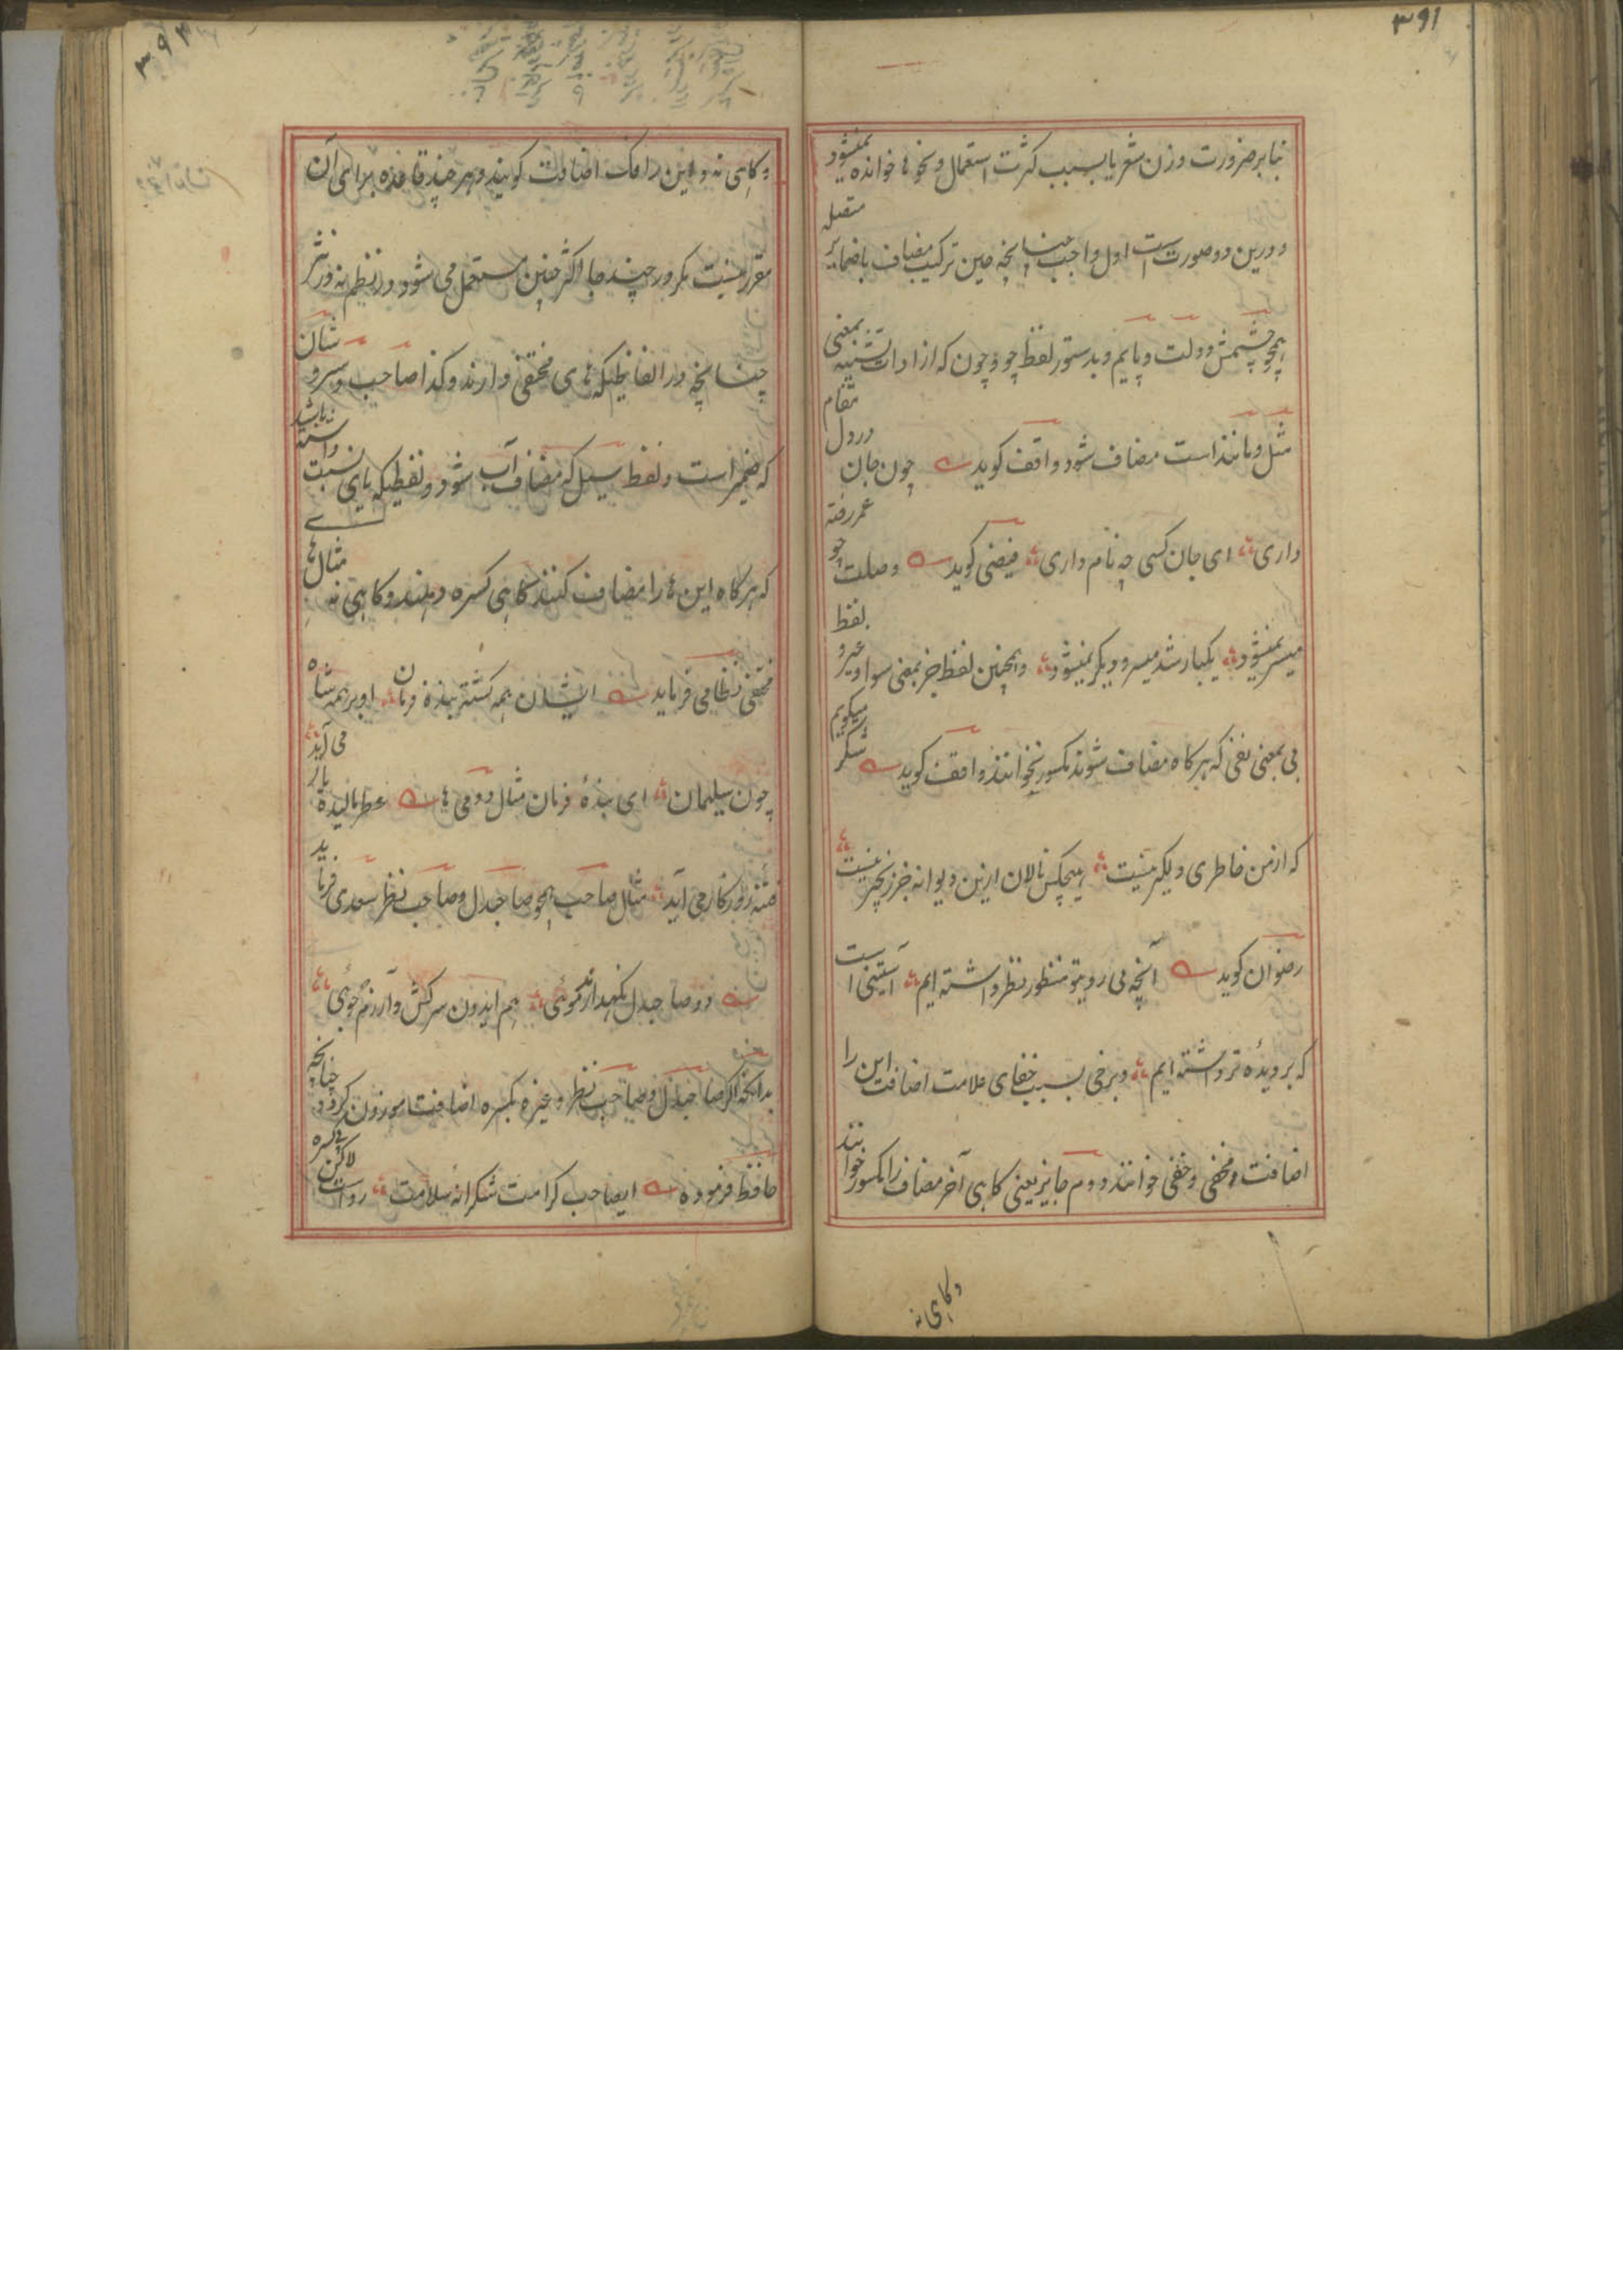 ۳۹۱
بنابر ضرورت وزن شعر یا بسبب کثرت استعمال و نحو ها خوانده نمیشود
و درین دو صورت است اول واجب چنانچه حین ترکیب مضاف با ضمایر متصل
همچو چشمش و دولت و پایم و بدستور لفظ چو و چون که از ادات تشبیه بمعنی
مثل و مانند است مضاف شود واقف کوید چون جان در دل مقام
داری ای جان کسی چه نام داری فیضی کوید وصلت چو عمر رفته
میسر نمیشود یکبار شد میسر و دیکر نمیشود و همچنین لفظ جز بمعنی سوا و غیر و لفظ
بی بمعنی نفی که هر کاه مضاف شوند مکسور نخوانند واقف کوید شکر میکویم
که از من خاطری دلکیر نیست هیچکس نالان ازین دیوانه جز زنجیر نیست
رضوان کوید آنچه بی روی تو منظور نظر داشته ایم آستینی است
که بر دیدهٔ تر داشته ایم و برخی بسبب خفای علامت اضافت این را
اضافت مخفی و خفی خوانند دوم جایز یعنی کاهی آخر مضاف را مکسور خوانند
وکاهی نه
۳۹۲
وکاهی نه و این را فک اضافت کویند و هر چند قاعده برای آن
مقرر نیست مکر در چند جا اکثر چنین مستعمل می شود در نظم نه در نثر
چنانچه در الفاظیکه های مختفی دارند و کذا صاحب و سر و شان
که ضمیر است و لفظ سیل که مضاف آب شود و لفظیکه یای نسبت داشته باشد
که هر کاه این ها را مضاف کنند کاهی کسره دهند و کاهی نه مثال های
مختفی نظامی فرماید ایشان همه کشته بنده فرمان او بر همه شاه
چون سلیمان ای بندهٔ فرمان مثال دومی ها عطر مالیده یار می آید
فتنه روزکار می آید مثال صاحب همچو صاحبدل و صاحب نظر سعدی فرماید
دو صاحبدل نکهدارند موئی هم ایدون سرکش و آزرم جوئی
بدانکه اکر صاحبدل و صاحب نظر و غیره بکسره اضافت موزون کردد چنانچه
حافظ فرموده ایصاحب کرامت شکرانه سلامت رواست لاکن بی کسره